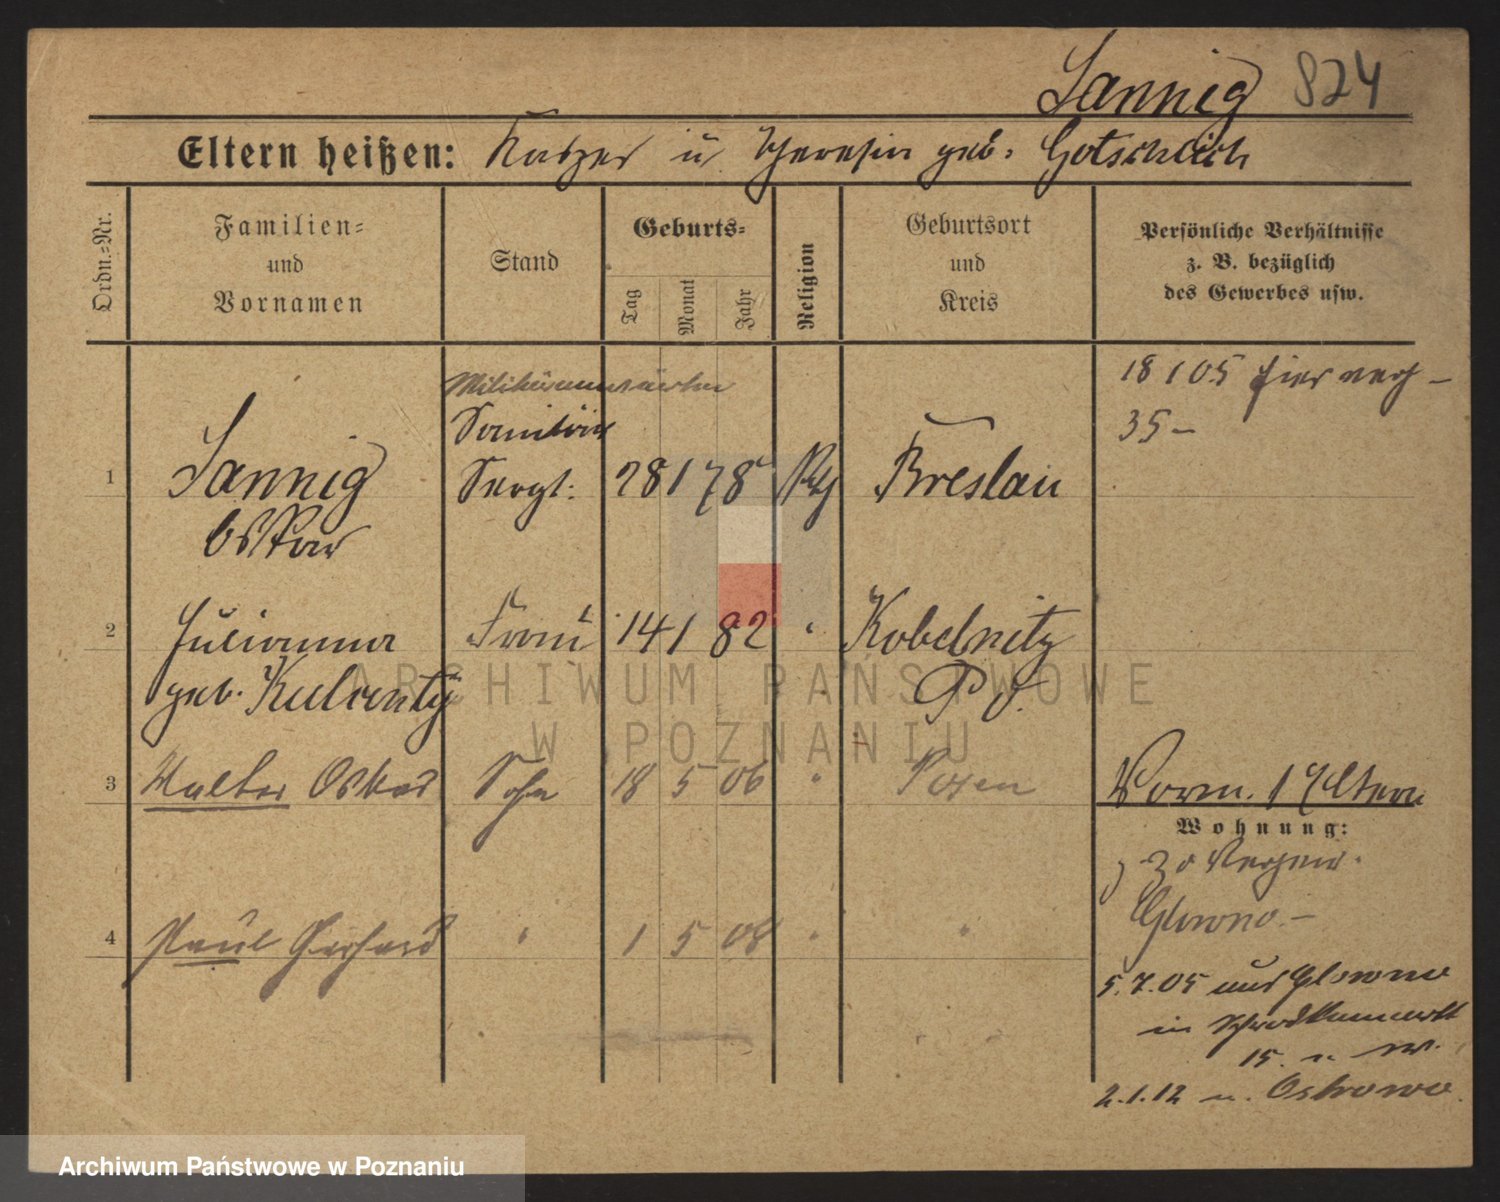 Sannig 824
Eltern heißen: Kasper u Theresia geb. Gotschlich
Ordn.-Nr.
Familien-
und
Vornamen
Stand
Geburts-
Tag
Monat
Jahr
Religion
Geburtsort
und
Kreis
Persönliche Verhältnisse
z. B. bezüglich
des Gewerbes usw.
Militäranwärter
Sanitäts
1 Sannig Sergt. 28 1 78 Breslau
Oskar
18 1 05
35-
2 Julianna Frau 14 1 82 " Kobelnitz
geb. P O.
3 Walter Oskar Sohn 18 5 06 " Posen
Vorm. 1 Eltern
Wohnung:
Glowno.-
4 Paul Gerhard " 1 5 08 " "
5.7.05 aus Glowno
in
15. n. W.
2.1.12 n. Ostrowo.
ARCHIWUM PAŃSTWOWE
W POZNANIU
Archiwum Państwowe w Poznaniu